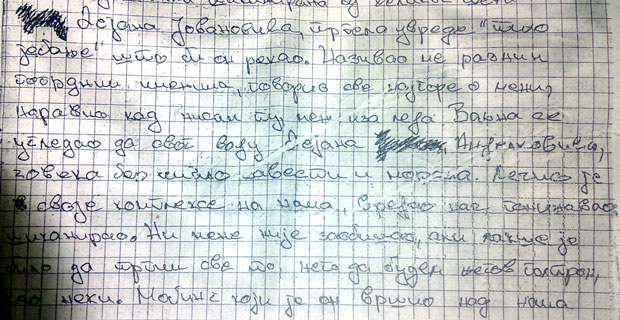 од
Дејана Јовановића, трпела увреде "тихо
јебање" што би он рекао. Називао ме разним
погрдним именима, говорио све најгоре о мени,
наравно кад нисам ту, мени иза леђа. Важно се
угледао да свог вођу Дејана Анђелковића,
човека без имало савести и морала. Лечио је
своје комплексе на нама, вређао нас, понижавао,
шиканирао. Ни мене није заобилао, али лакше је
било да трпим све то, него да будем његов
неки. Мобинг који је он вршио над нама